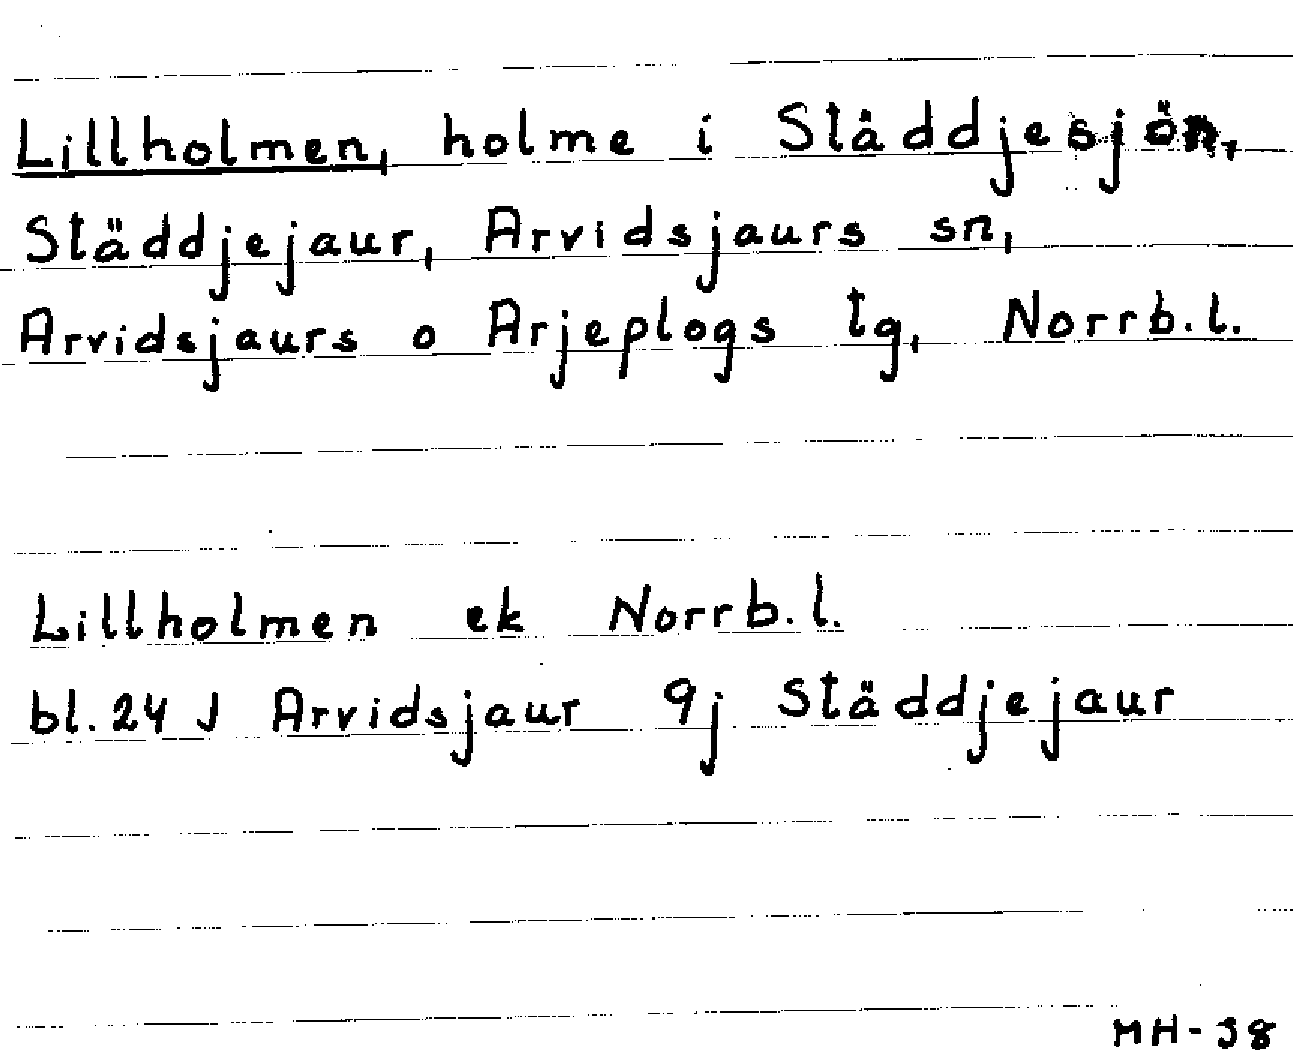 Lillholmen, holme i Ståddjesjön,
Ståddjejaur, Arvidsjaurs sn,
Arvidsjaurs o Arjeplogs tg, Norrb.l.
Lillholmen ek Norrb.l.
bl. 24 J Arvidsjaur 9j Ståddjejaur
MH-38